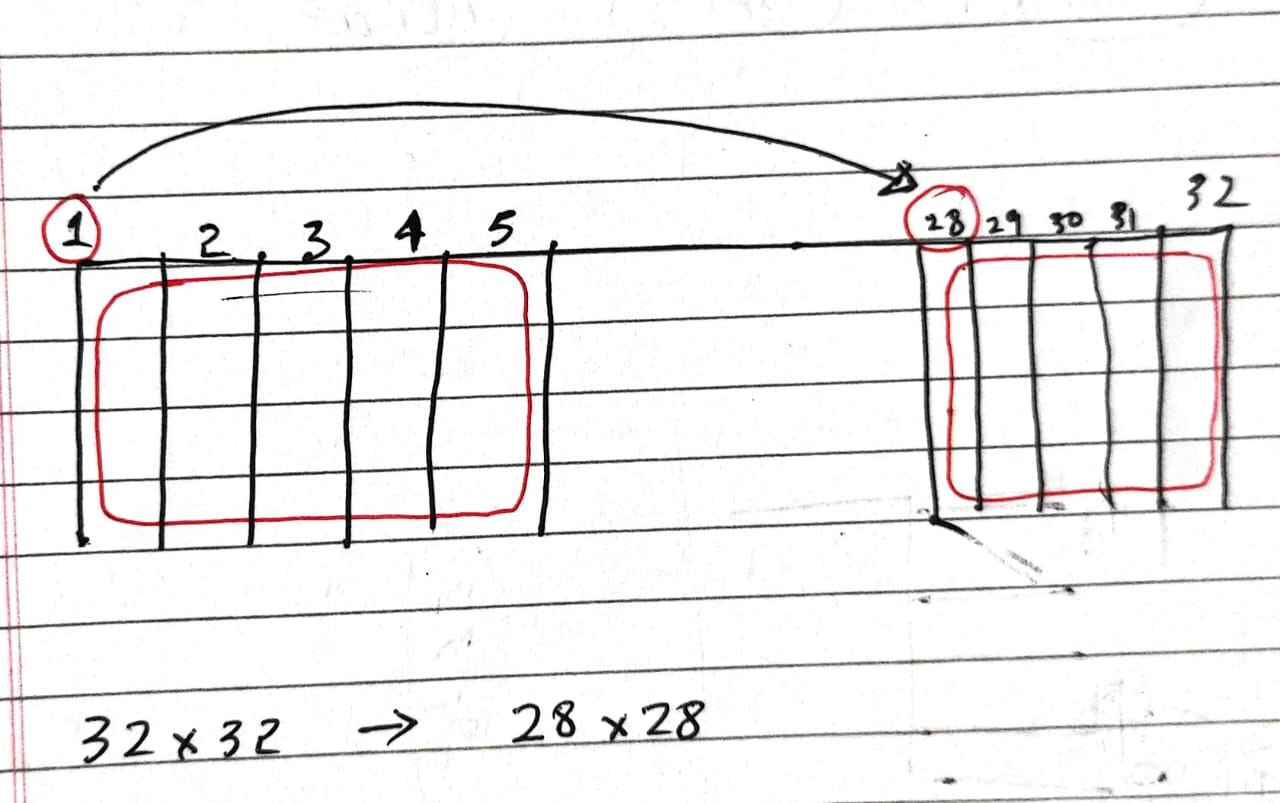 1 2 3 4 5 28 29 30 31 32
32 x 32 → 28 x 28